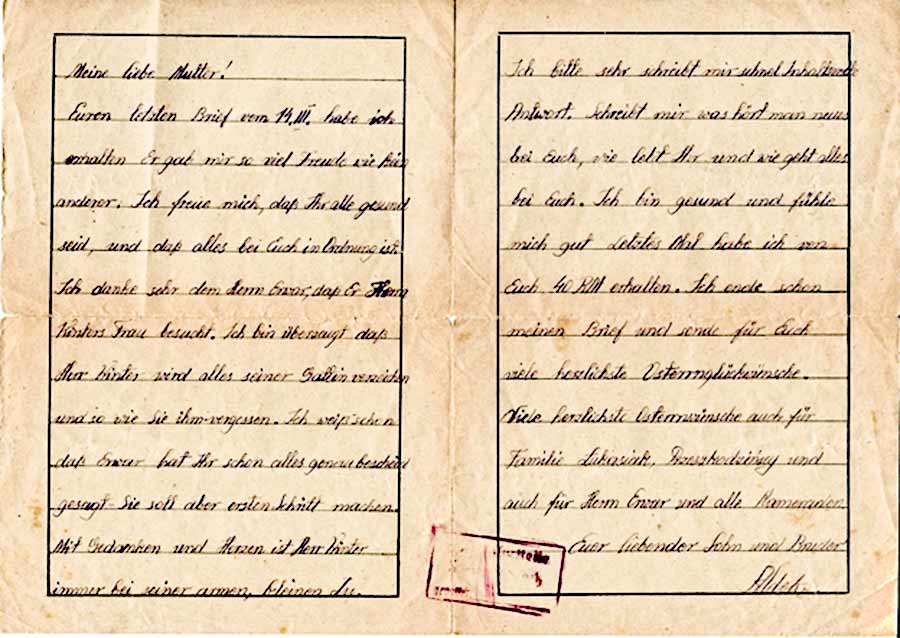 Meine liebe Mutter!
Euren letzten Brief vom 14.III. habe ich
erhalten Er gab mir so viel Freude wie kein
anderer. Ich freue mich, daß Ihr alle gesund
seid, und daß alles bei Euch in Ordnung ist.
Ich danke sehr dem Herrn Erwar, dap Er Herrn
Winters Frau besucht. Ich bin überzeugt daß
Herr Winter wird alles seiner Gattin verzeihen
und so wie Sie ihm vergessen. Ich weiß schon
daß Erwar hat Ihr schon alles genau bescheid
gesagt - Sie soll aber ersten Schritt machen.
Mit Gedanken und Herzen ist Herr Winter
immer bei seiner armen, kleinen
Ich bitte sehr schreibt mir schnel Inhaltsvolle
Antwort. Schreibt mir was hört man neues
bei Euch, wie lebt Ihr und wie geht alles
bei Euch. Ich bin gesund und fühle
mich gut Letztes Mal habe ich von
Euch 40 RM erhalten. Ich ende schon
meinen Brief und sende für Euch
viele herzlichste Osternglückwünsche.
Viele herzlichste Osternwünsche auch für
Familie Lukasiak, und
auch für Herrn Erwar und alle Kameraden
Euer liebender Sohn und Bruder